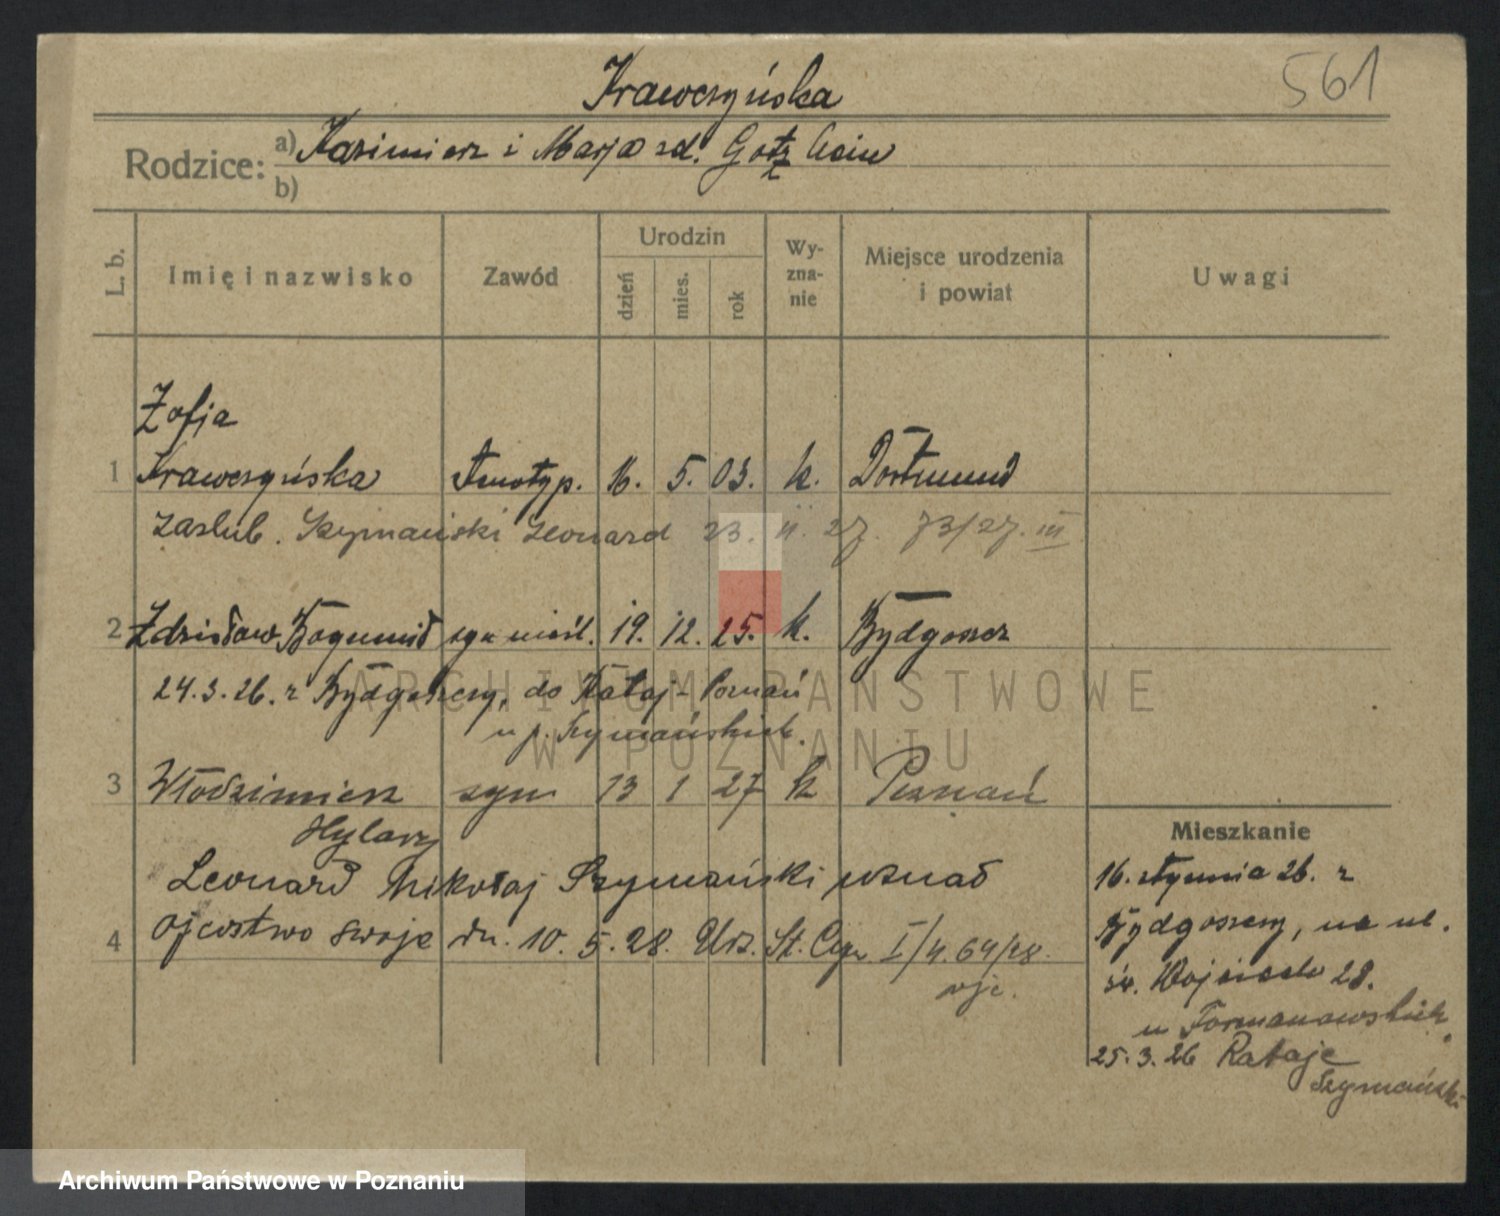 Krawczyńska
561
Rodzice: a) Kazimierz i Marja zd.
b)
L. b. Imię i nazwisko Zawód Urodzin dzień mies. rok Wy-zna-nie Miejsce urodzenia i powiat Uwagi
Zofja
1 Krawczyńska 16. 5. 03. k. Dortmund
zaślub. Szymański Leonard 23. 4. 27. 73/27. III
2 Zdzisław Bogumił syn nieśl. 19. 12. 25. k. Bydgoszcz
24.3.26. z Bydgoszczy, do Rataj - Poznań
u p. Szymańskich.
3 Włodzimierz syn 13 1 27 k Poznań
Hylary
Leonard Mikołaj Szymański uznał
4 ojcostwo swoje dn. 10. 5. 28. Urz. St. Cyw. I/4.64/28.
Mieszkanie
16. stycznia 26. z
Bydgoszczy, na ul.
św. Wojciecha 28.
u
25.3.26 Rataje
Szymański
ARCHIWUM PAŃSTWOWE
W POZNANIU
Archiwum Państwowe w Poznaniu